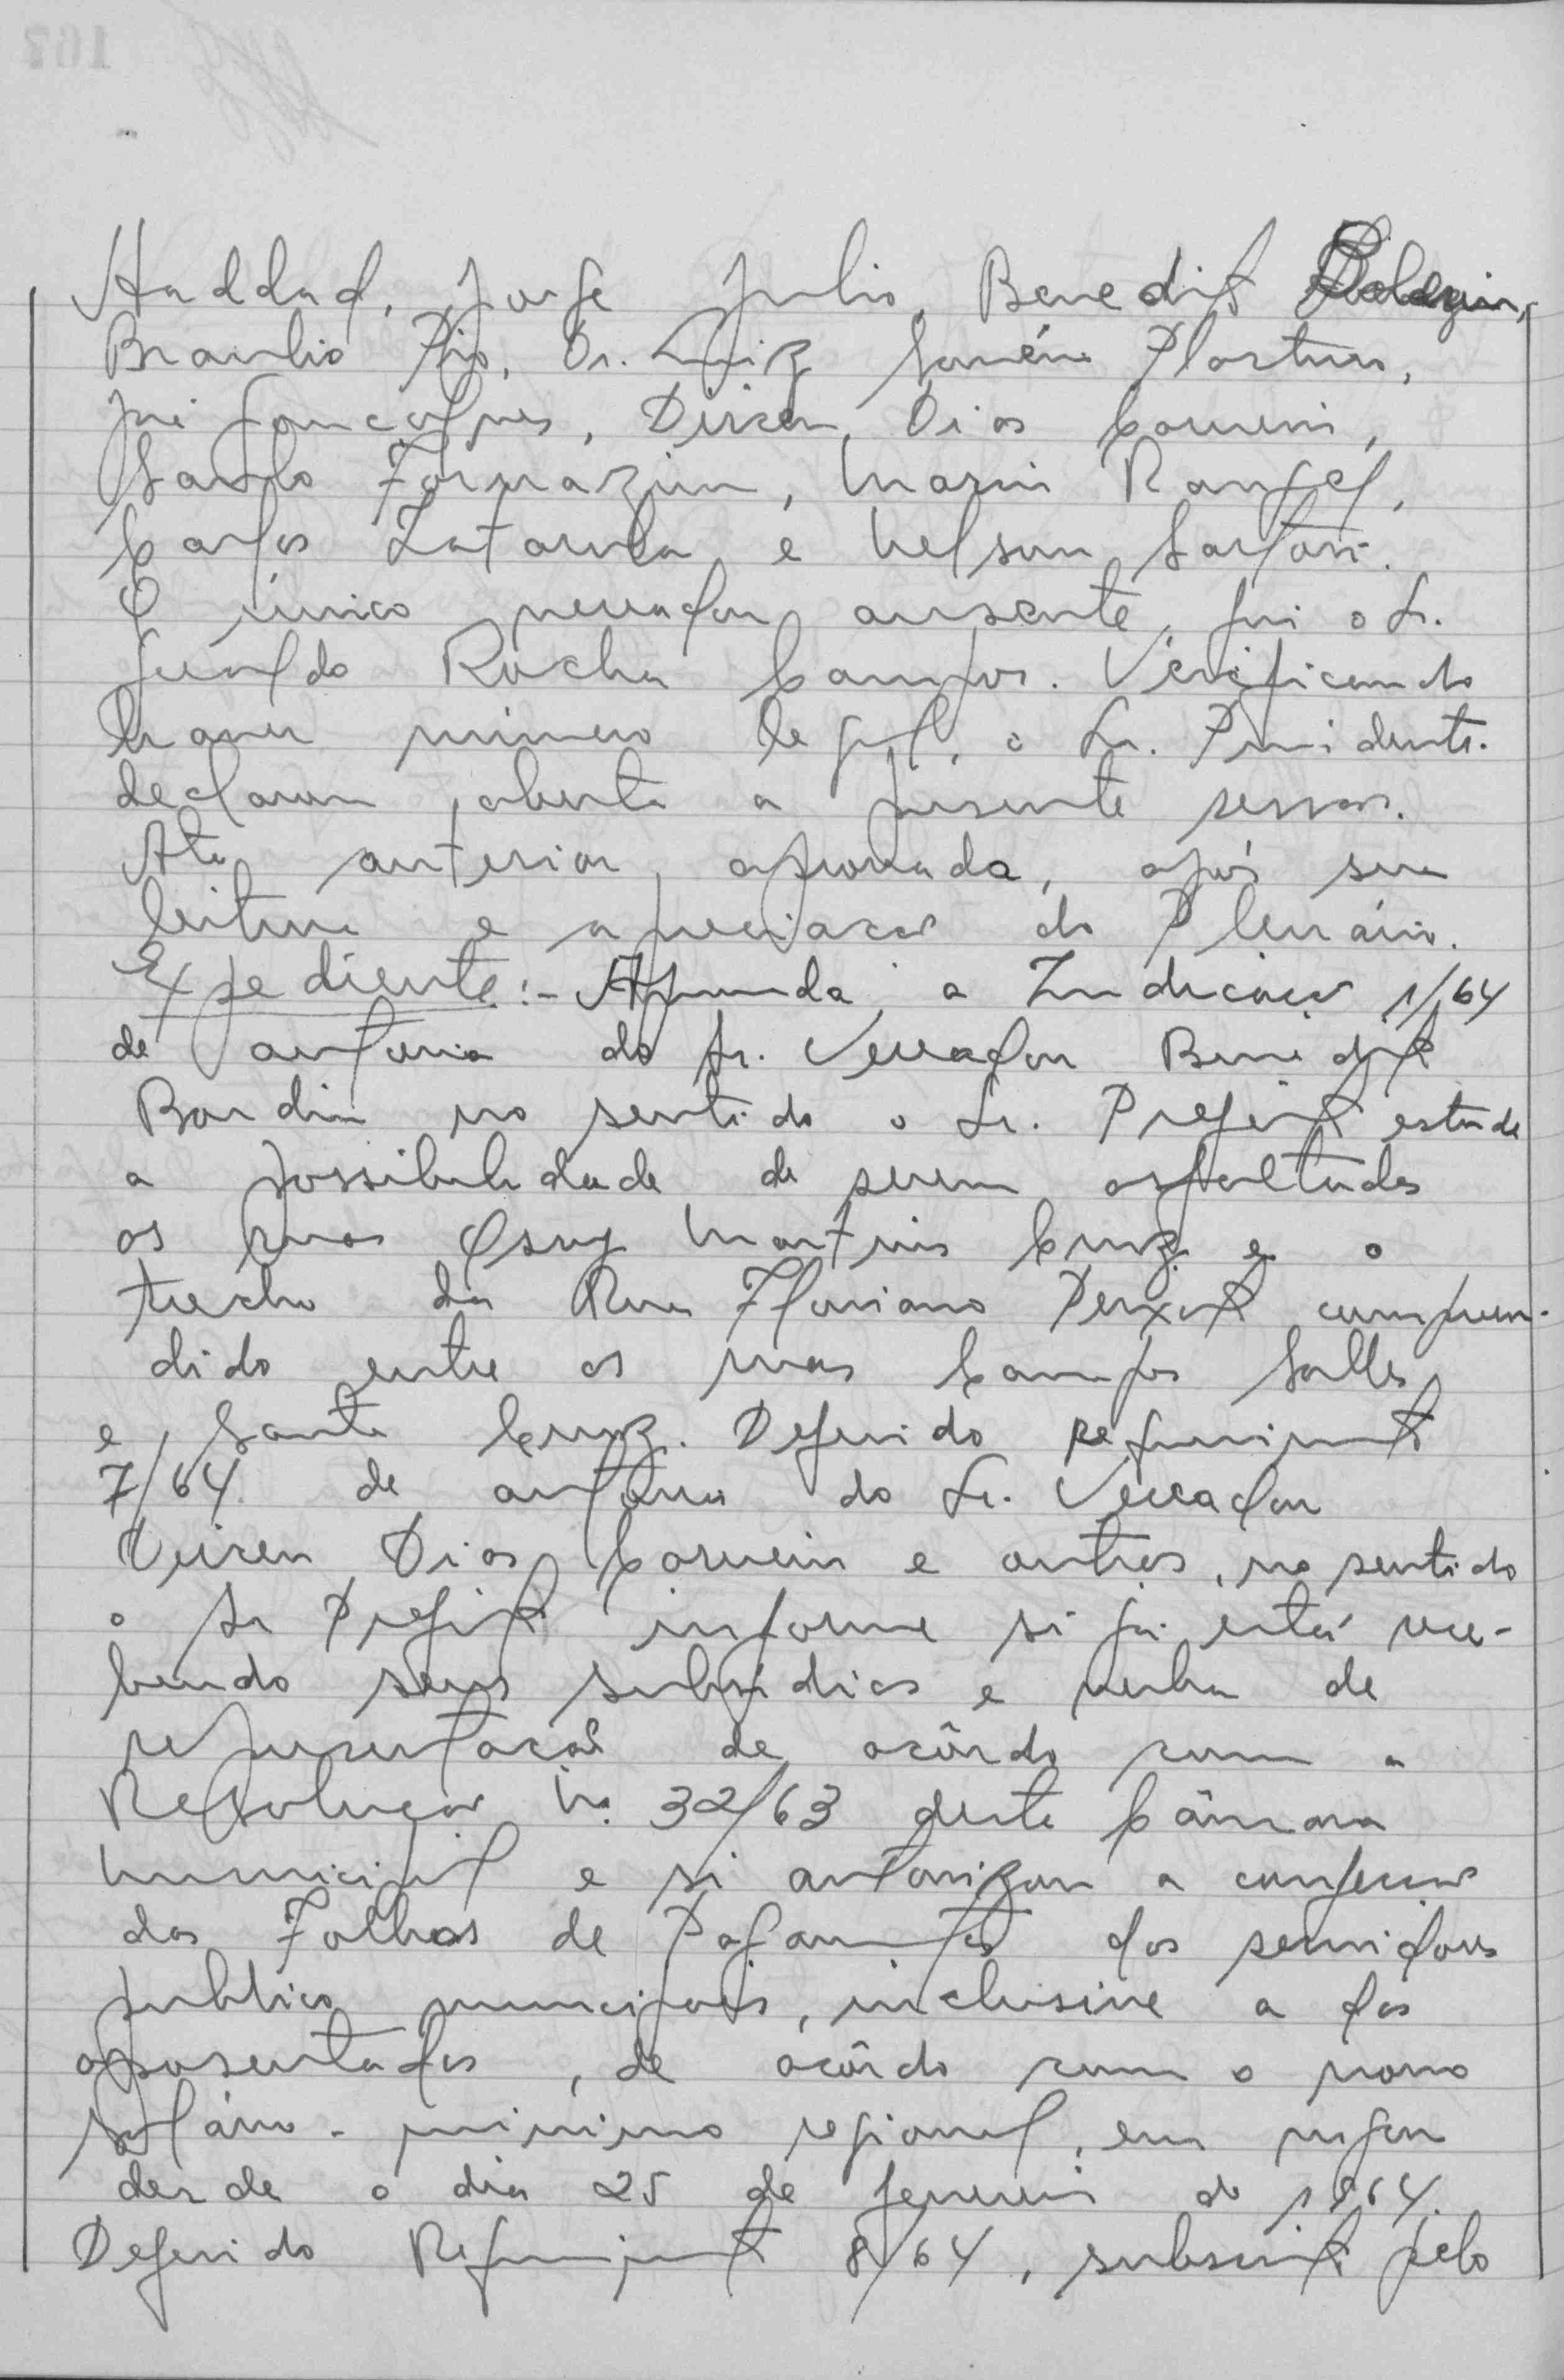 Haddad, Jorge Julio, Benedito
Braulio Pio, Dr. Luiz Martins,
José Gonçalves, Dirceu Dias Carneiro,
Santo Formazim, Mario Rangel,
Carlos Zatarela e Nelson Sartori.
O único vereador ausente, foi o Sr.
Geraldo Rocha Campos. Verificando
haver número legal, o Sr. Presidente
declarou aberta a presente sessão.
Ata anterior aprovada, após sua
leitura e apreciação do Plenário.
Expediente:- Aprovada a Indicação 1/64
de autoria do Sr. Vereador Benedito
Bordin no sentido o Sr. Prefeito estude
a possibilidade de serem asfaltadas
as ruas Osny Martins Cruz e o
trecho da Rua Floriano Peixoto compreen-
dido entre as ruas Campos Salles
e Santa Cruz. Deferido requerimento
7/64 de autoria do Sr. Vereador
Dirceu Dias Carneiro e outros, no sentido
o Sr Prefeito informe si já está rece-
bendo seus subsídios e verba de
representação de acôrdo com a
Resolução No. 32/63 desta Câmara
Municipal e si autorizou a confecção
das Folhas de Pagamentos dos servidores
publico municipais, inclusive a dos
aposentados, de acôrdo com o novo
salário-mínimo regional, em vigor
desde o dia 25 de fevereiro de 1964.
Deferido Requerimento 8/64, subscrito pelo